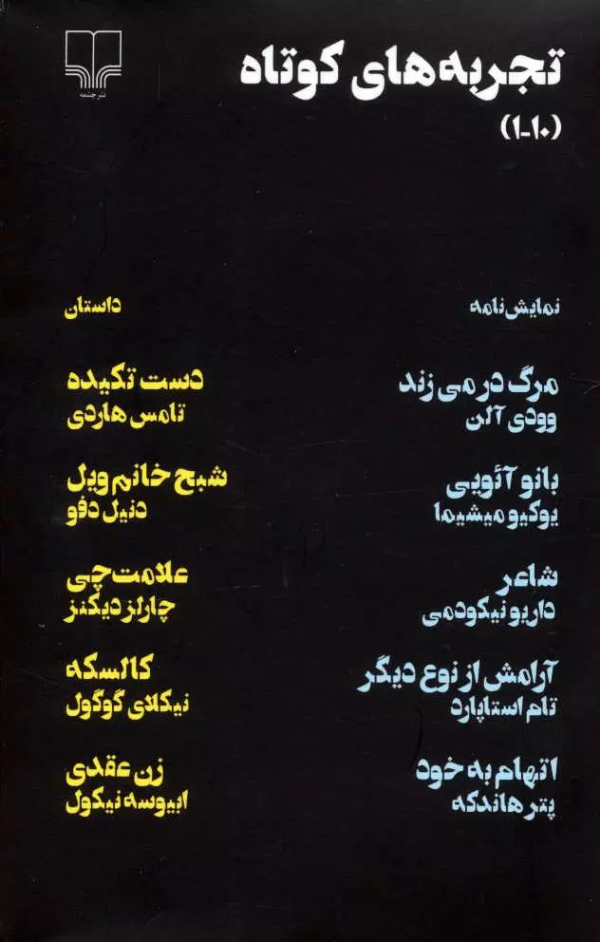 نشرچشمه
تجربه‌های کوتاه
(۱-۱۰)
نمایش‌نامه
مرگ در می زند
وودی آلن
بانو آئویی
یوکیو میشیما
شاعر
داریو نیکودمی
آرامش از نوع دیگر
تام استاپارد
اتهام به خود
پتر هاندکه
داستان
دست تکیده
تامس هاردی
شبح خانم ویل
دنیل دفو
علامت‌چی
چارلز دیکنز
کالسکه
نیکلای گوگول
زن عقدی
ابیوسه نیکول